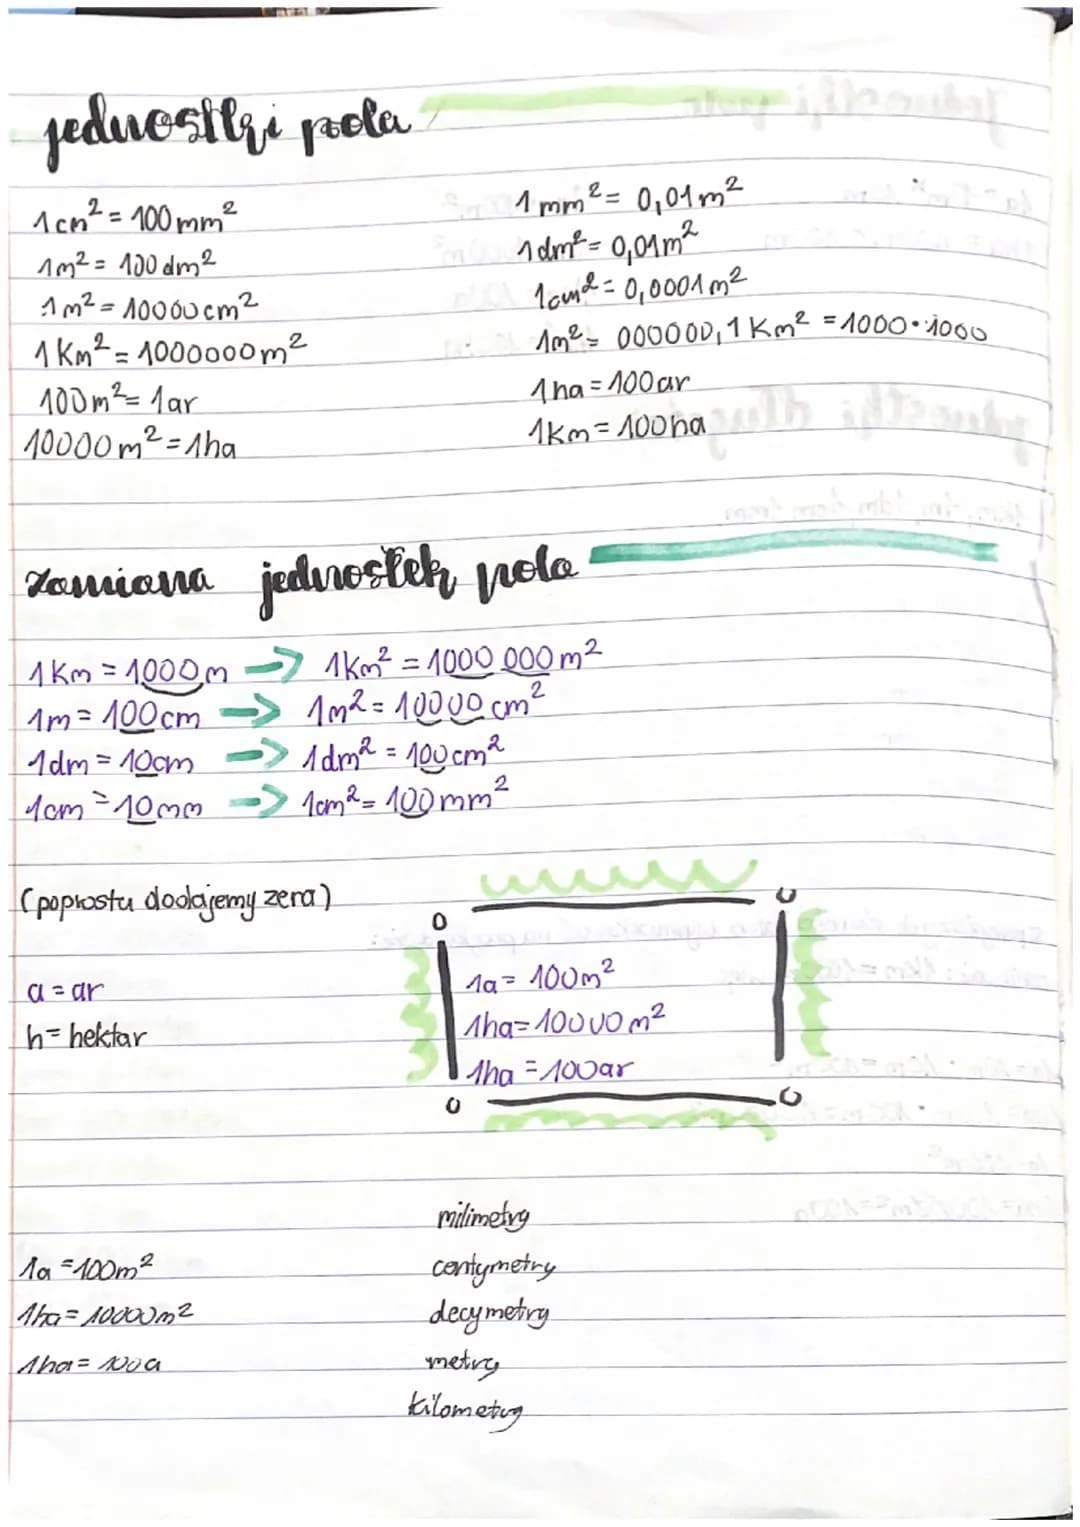 jednostki pola
1cm² = 100mm²
1m² = 100dm²
1m² = 10000cm²
1Km² = 1000000m²
100m² = 1ar
10000m² = 1ha
1mm² = 0,01m²
1dm² = 0,01m²
1cm² = 0,0001m²
1m² = 000000,1Km² = 1000·1000
1ha = 100ar
1Km = 100ha
zamiana jednostek pola
1Km = 1000m → 1Km² = 1000 000m²
1m = 100cm → 1m² = 10000cm²
1dm = 10cm → 1dm² = 100cm²
1cm = 10mm → 1cm² = 100mm²
(poprostu dodajemy zera)
a = ar
h = hektar
1a = 100m²
1ha = 10000m²
1ha = 100ar
1a = 100m²
1ha = 10000m²
1ha = 100a
milimetry
centymetry
decymetry
metry
kilometry